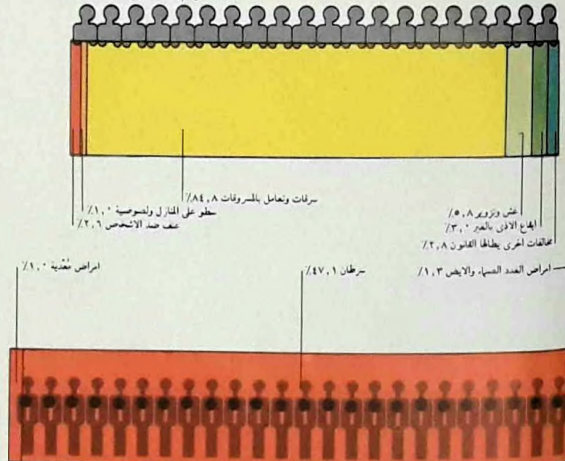 سرقات وتعامل بالمسروقات ٨٤,٨٪
سطو على المنازل ولصوصية ١,٠٪
عنف ضد الاشخص ٢,٦٪
غش وتزوير ٥,٨٪
ايقاع الاذى بالغير ٣,٠٪
مخالفات اخرى يطالها القانون ٢,٨٪
امراض مُعْدية ١,٠٪
سرطان ٤٧,١٪
امراض الغدد الصماء والايض ١,٣٪